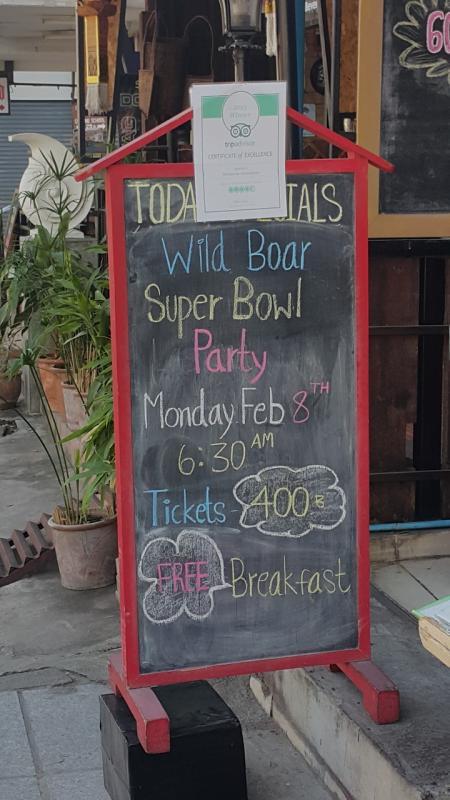 tripadvisor
CERTIFICATE of EXCELLENCE
TODA
IALS
Wild Boar
Super Bowl
Party
Monday Feb 8TH
6:30 AM
Tickets - 400 B
FREE Breakfast
60